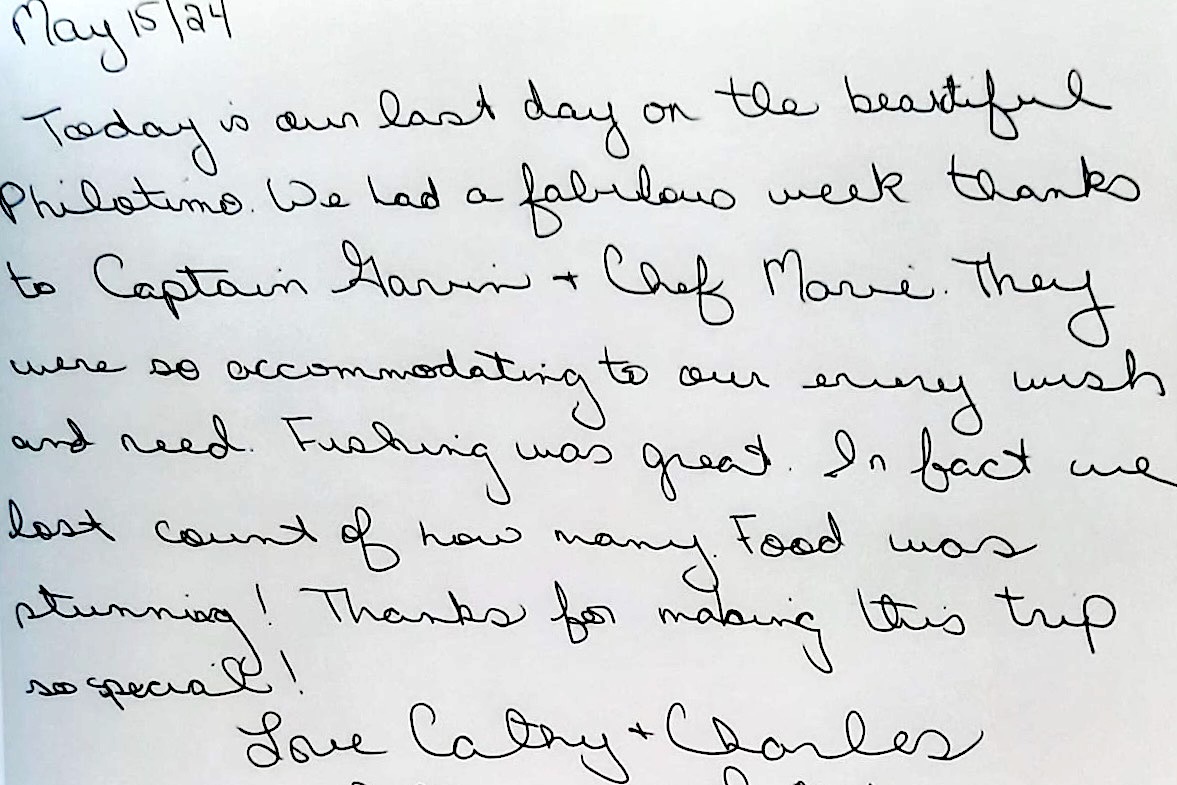 May 15/24
Today is our last day on the beautiful
Philotimo. We had a fabulous week thanks
to Captain Garvin + Chef Marie. They
were so accommodating to our every wish
and need. Fishing was great. In fact we
lost count of how many. Food was
stunning! Thanks for making this trip
so special!
Love Cathy + Charles